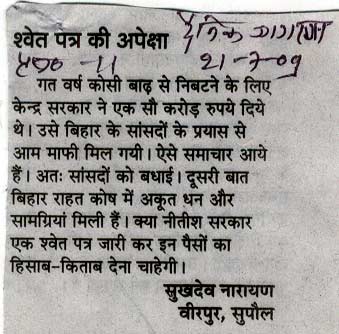 श्वेत पत्र की अपेक्षा दैनिक जागरण
पृष्ठ - 11 21-7-09
गत वर्ष कोसी बाढ़ से निबटने के लिए
केन्द्र सरकार ने एक सौ करोड़ रुपये दिये
थे। उसे बिहार के सांसदों के प्रयास से
आम माफी मिल गयी। ऐसे समाचार आये
हैं। अतः सांसदों को बधाई। दूसरी बात
बिहार राहत कोष में अकूत धन और
सामग्रियां मिली हैं। क्या नीतीश सरकार
एक श्वेत पत्र जारी कर इन पैसों का
हिसाब-किताब देना चाहेगी।
सुखदेव नारायण
वीरपुर, सुपौल